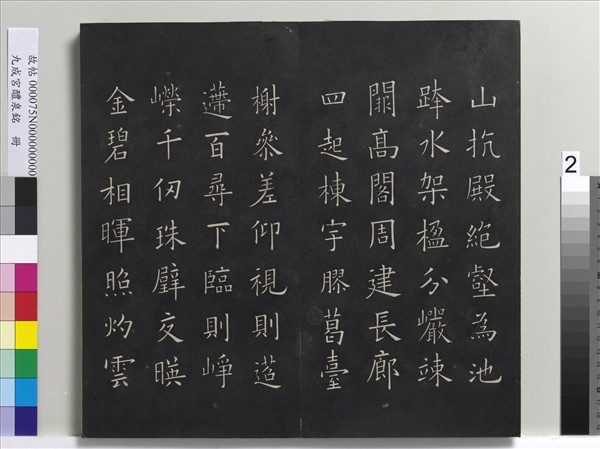 山抗殿絶壑為池
跨水架楹分巖竦
闕高閣周建長廊
四起棟宇膠葛臺
榭參差仰視則迢
遰百尋下臨則崢
嶸千仞珠璧交暎
金碧相暉照灼雲
故帖 000075N000000000
九成宮醴泉銘 冊
2